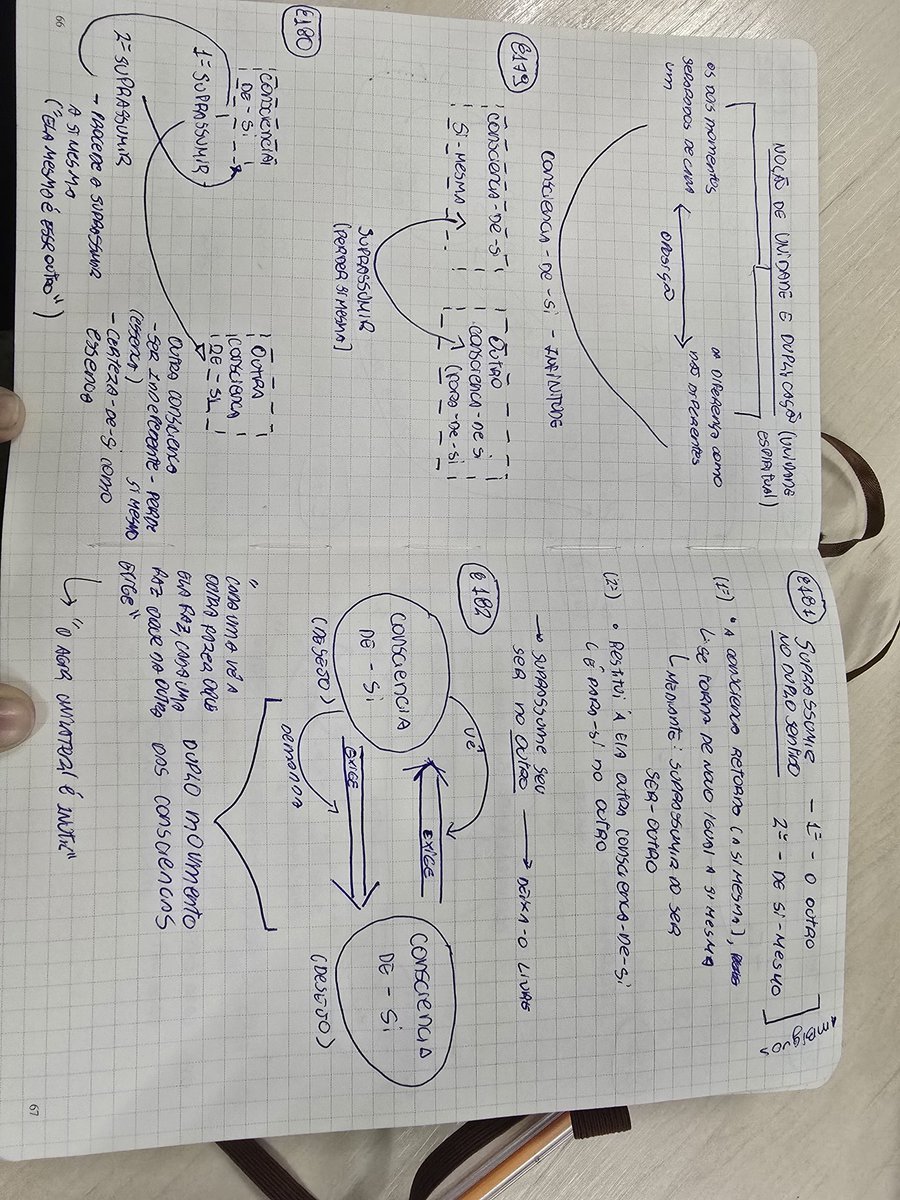 NOÇÃO DE UNIDADE E DUPLICAÇÃO (UNIDADE
ESPIRITUAL)
OS DOIS MOMENTOS
SEPARADOS DE CADA
UM
OPOSIÇÃO
A DIFERENÇA COMO
NÃO DIFERENTES
§179
CONSCIENCIA - DE - SI - INFINITUDE
CONSCIENCIA - DE - SI
SI - MESMA
OUTRO
CONSCIENCIA - DE - SI
(FORA - DE - SI
SUPRASSUMIR
(PERDER SI MESMA)
§180
CONSCIENCIA
DE - SI
1º SUPRASSUMIR
2º SUPRASSUMIR
→ PROCEDE A SUPRASSUMIR
A SI MESMA
("ELA MESMO É ESSE OUTRO")
OUTRA
CONSCIENCIA
DE - SI
OUTRA CONSCIENCIA
- SER INDEPENDENTE - PERDE
(ESSENCIA) SI MESMO
- CERTEZA - DE - SI COMO
ESSENCIA
66
§181
SUPRASSUMIR
NO DUPLO SENTIDO
- 1º - O OUTRO
2º - DE SI - MESMO
AMBÍGUOS
(1º) • A CONSCIENCIA RETORNA (A SI MESMA),
SE TORNA DE NOVO IGUAL A SI MESMA
MEDIANTE: SUPRASSUMIR DO SER
SER - OUTRO
(2º) • RESTITUI À ELA OUTRA CONSCIENCIA - DE - SI
É PARA - SI NO OUTRO
→ SUPRASSUME SEU
SER NO OUTRO → DEIXA - O LIVRE
§182
CONSCIENCIA
DE - SI
(DESEJO)
VÊ
EXIGE
EXIGE
DEMANDA
CONSCIENCIA
DE - SI
(DESEJO)
"CADA UMA VÊ A
OUTRA FAZER O QUE
ELA FAZ, CADA UMA
FAZ O QUE NA OUTRA
EXIGE"
DUPLO MOVIMENTO
DAS CONSCIENCIAS
↳ "O AGIR UNILATERAL É INUTIL"
67